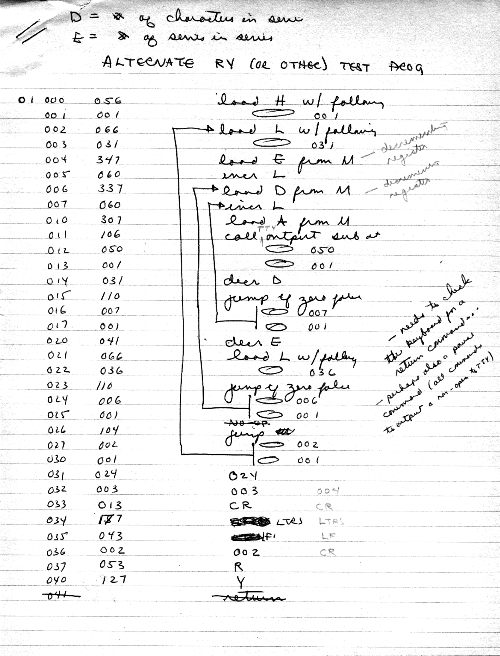 D = # of characters in serie
E = # of series in series
ALTERNATE RY (OR OTHER) TEST PROG
01 000 056 load H w/ following
001 001 001
002 066 load L w/ following
003 031 031
004 347 load E from M — decrementing register
005 060 incr L
006 337 load D from M — decrements register
007 060 incr L
010 307 load A from M
011 106 call TTY output sub at
012 050 050
013 001 001
014 031 decr D
015 110 jump if zero false
016 007 007
017 001 001
020 041 decr E
021 066 load L w/ following
022 036 036
023 110 jump if zero false
024 006 006
025 001 001
026 104 jump
027 002 002
030 001 001
031 024 024
032 003 003 004
033 013 CR CR
034 LTRS LTRS
035 043 LF LF
036 002 002 CR
037 053 R
040 127 Y
041 return
— needs to check
the keyboard for a
return command...
— perhaps also a pause
command (all commands
to output a non-open to TTY)